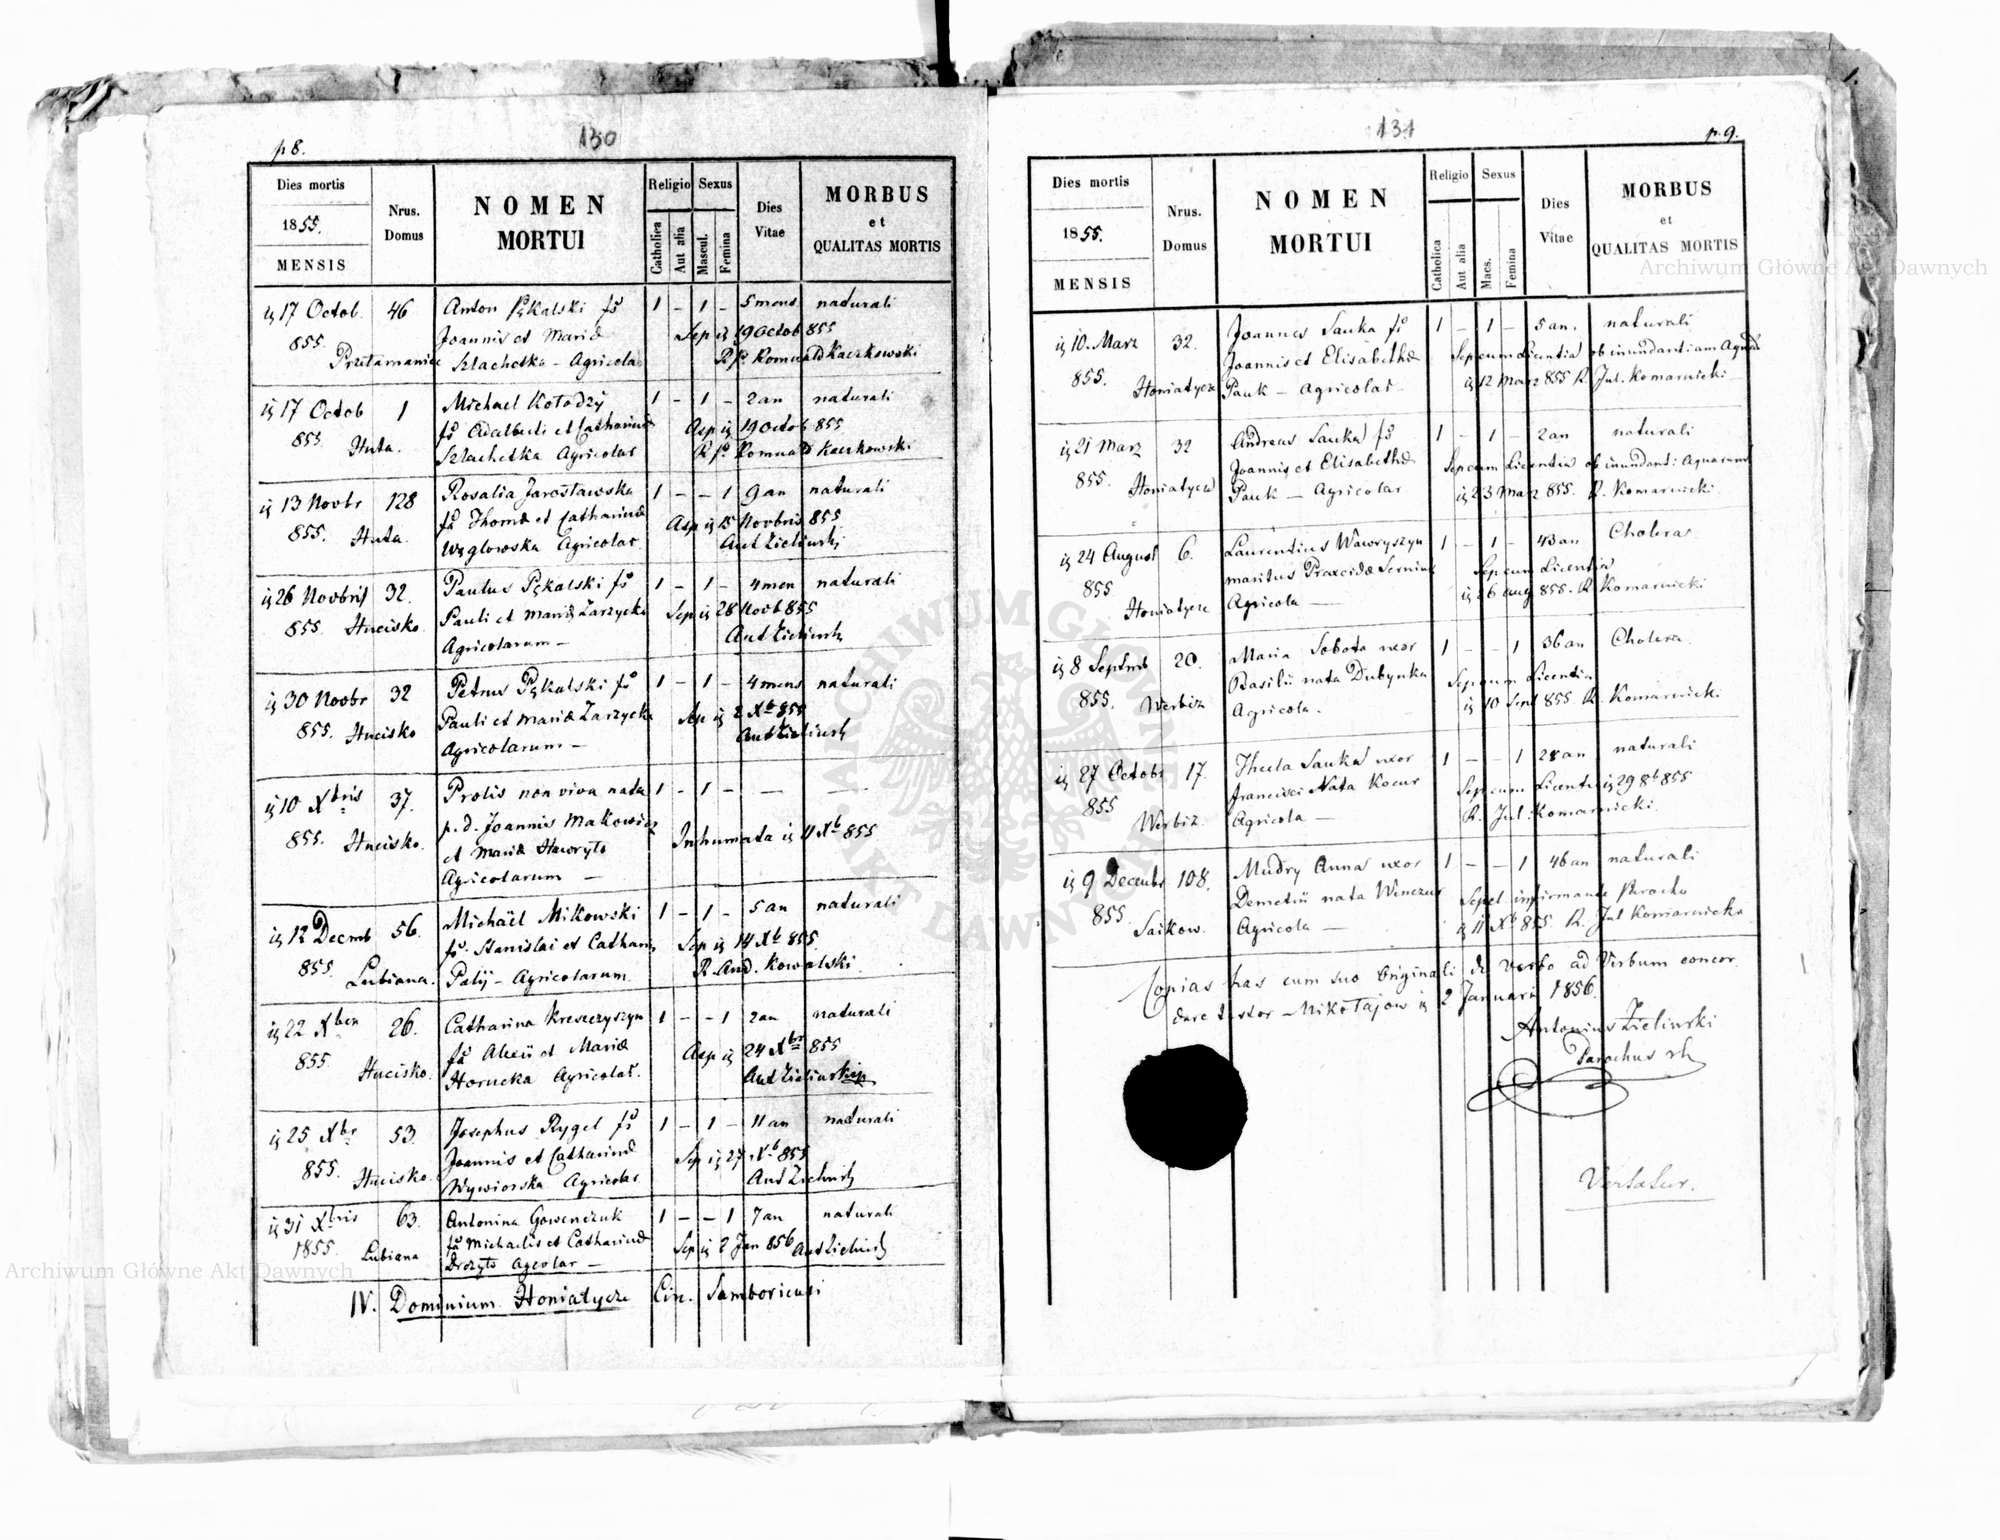 p 8.
130
Dies mortis
1855.
MENSIS
Nrus. Domus
NOMEN MORTUI
Religio
Catholica
Aut alia
Sexus
Mascul.
Femina
Dies Vitae
MORBUS et QUALITAS MORTIS
17 Octob. 46 Anton Pękalski 1 – 1 – 5 mens naturali
855. Joannis et Mariæ Sep 19 Octob 855
Szlachetka – Agricolar Romuald Kaczkowski
17 Octob 1 Michael Kołodzij 1 – 1 – 2 an naturali
855 Huta. Adalberti et Catharinæ 19 Octob 855
Szlachetka Agricolar Romuald Kaczkowski
13 Novbr 128 Rosalia Jarosławska 1 – – 1 9 an naturali
855. Huta. Thomæ et Catharinæ 15 Novbris 855
Węglowska Agricolar. Ant Zielinski
26 Novbris 32. Paulus Pękalski 1 – 1 – 4 men naturali
855. Hucisko. Pauli et Mariæ Zarzycka Sep 28 Novb 855
Agricolarum – Ant Zielinski
30 Novbr 32 Petrus Pękalski 1 – 1 – 4 mens naturali
855. Hucisko Pauli et Mariæ Zarzycka 2 Xb 855
Agricolarum – Ant Zielinski
10 Xbris 37. Prolis non viva nata 1 – 1 – — —
855. Hucisko. p. d. Joannis Makowicz
et Mariæ Hawryło Inhumata 11 Xb 855
Agricolarum —
12 Decmb 56. Michaël Mikowski 1 – 1 – 5 an naturali
855. Lubiana. Stanislai et Cathari Sep 14 Xb 855
Palij – Agricolarum R. And. Kowalski
22 Xbr 26. Catharina Kreszczyszyn 1 – – 1 2 an naturali
855. Hucisko. Alexii et Mariæ 24 Xbr 855
Hornecka Agricolar. Ant Zielinski
25 Xbr 53. Josephus Rygel 1 – 1 – 11 an naturali
855. Hucisko. Joannis et Catharinæ Sep 27 Xb 855
Wywiorska Agricolar Ant Zielinski
31 Xbris 63. Antonina Gowenczuk 1 – – 1 7 an naturali
1855. Lubiana Michaelis et Catharinæ Sep 2 Jan 856 Ant Zielinski
IV. Dominium Honiatycze Circ. Samboriensi
131
p. 9.
Dies mortis
1855.
MENSIS
Nrus. Domus
NOMEN MORTUI
Religio
Catholica
Aut alia
Sexus
Masc.
Femina
Dies Vitae
MORBUS et QUALITAS MORTIS
10. Marz 32. Joannes Sauka 1 – 1 – 5 an. naturali
855. Joannis et Elisabethæ Sep cum Licentia ob inundantiam
Honiatycze Pauk – Agricolar 12 Marz 855 R. Jul. Komarnicki
21 Marz 32 Andreas Sauka 1 – 1 – 2 an naturali
855. Joannis et Elisabethæ Sep cum Licentia ob inundanti: Aquarum
Honiatycze Pauk – Agricolar 23 Marz 855. R. Komarnicki
24 August 6. Laurentius Wawryszyn 1 – 1 – 43 an Cholera
855 maritus Praxedæ Sep cum Licentia
Honiatycze Agricola — 26 Aug 855. R. Komarnicki
8 Septmb 20. Maria Sobota uxor 1 – – 1 36 an Cholera
855. Werbiz Basilii nata Dubynka Sep cum Licentia
Agricola. 10 Sept 855 R. Komarnicki
27 Octobr 17. Thecla Sauka uxor 1 – – 1 28 an naturali
855 Francisci Nata Kocur Sep cum Licentia 29 8b 855
Werbiz Agricola — R. Jul: Komarnicki.
9 Decembr 108. Mudry Anna uxor 1 – – 1 46 an naturali
855. Demetrii nata Wenczur Sepel infirmante Parocho
Saikow. Agricola — 11 Xb 855 R. Jul Komarnicki
Copias has cum suo Originali de Verbo ad Verbum concor
dare testor – Mikołajow 2 Januarii 1856.
Antonius Zielinski
Parochus
Vertatur.
ARCHIWUM GŁÓWNE AKT DAWNYCH
Archiwum Główne Akt Dawnych
Archiwum Główne Akt Dawnych